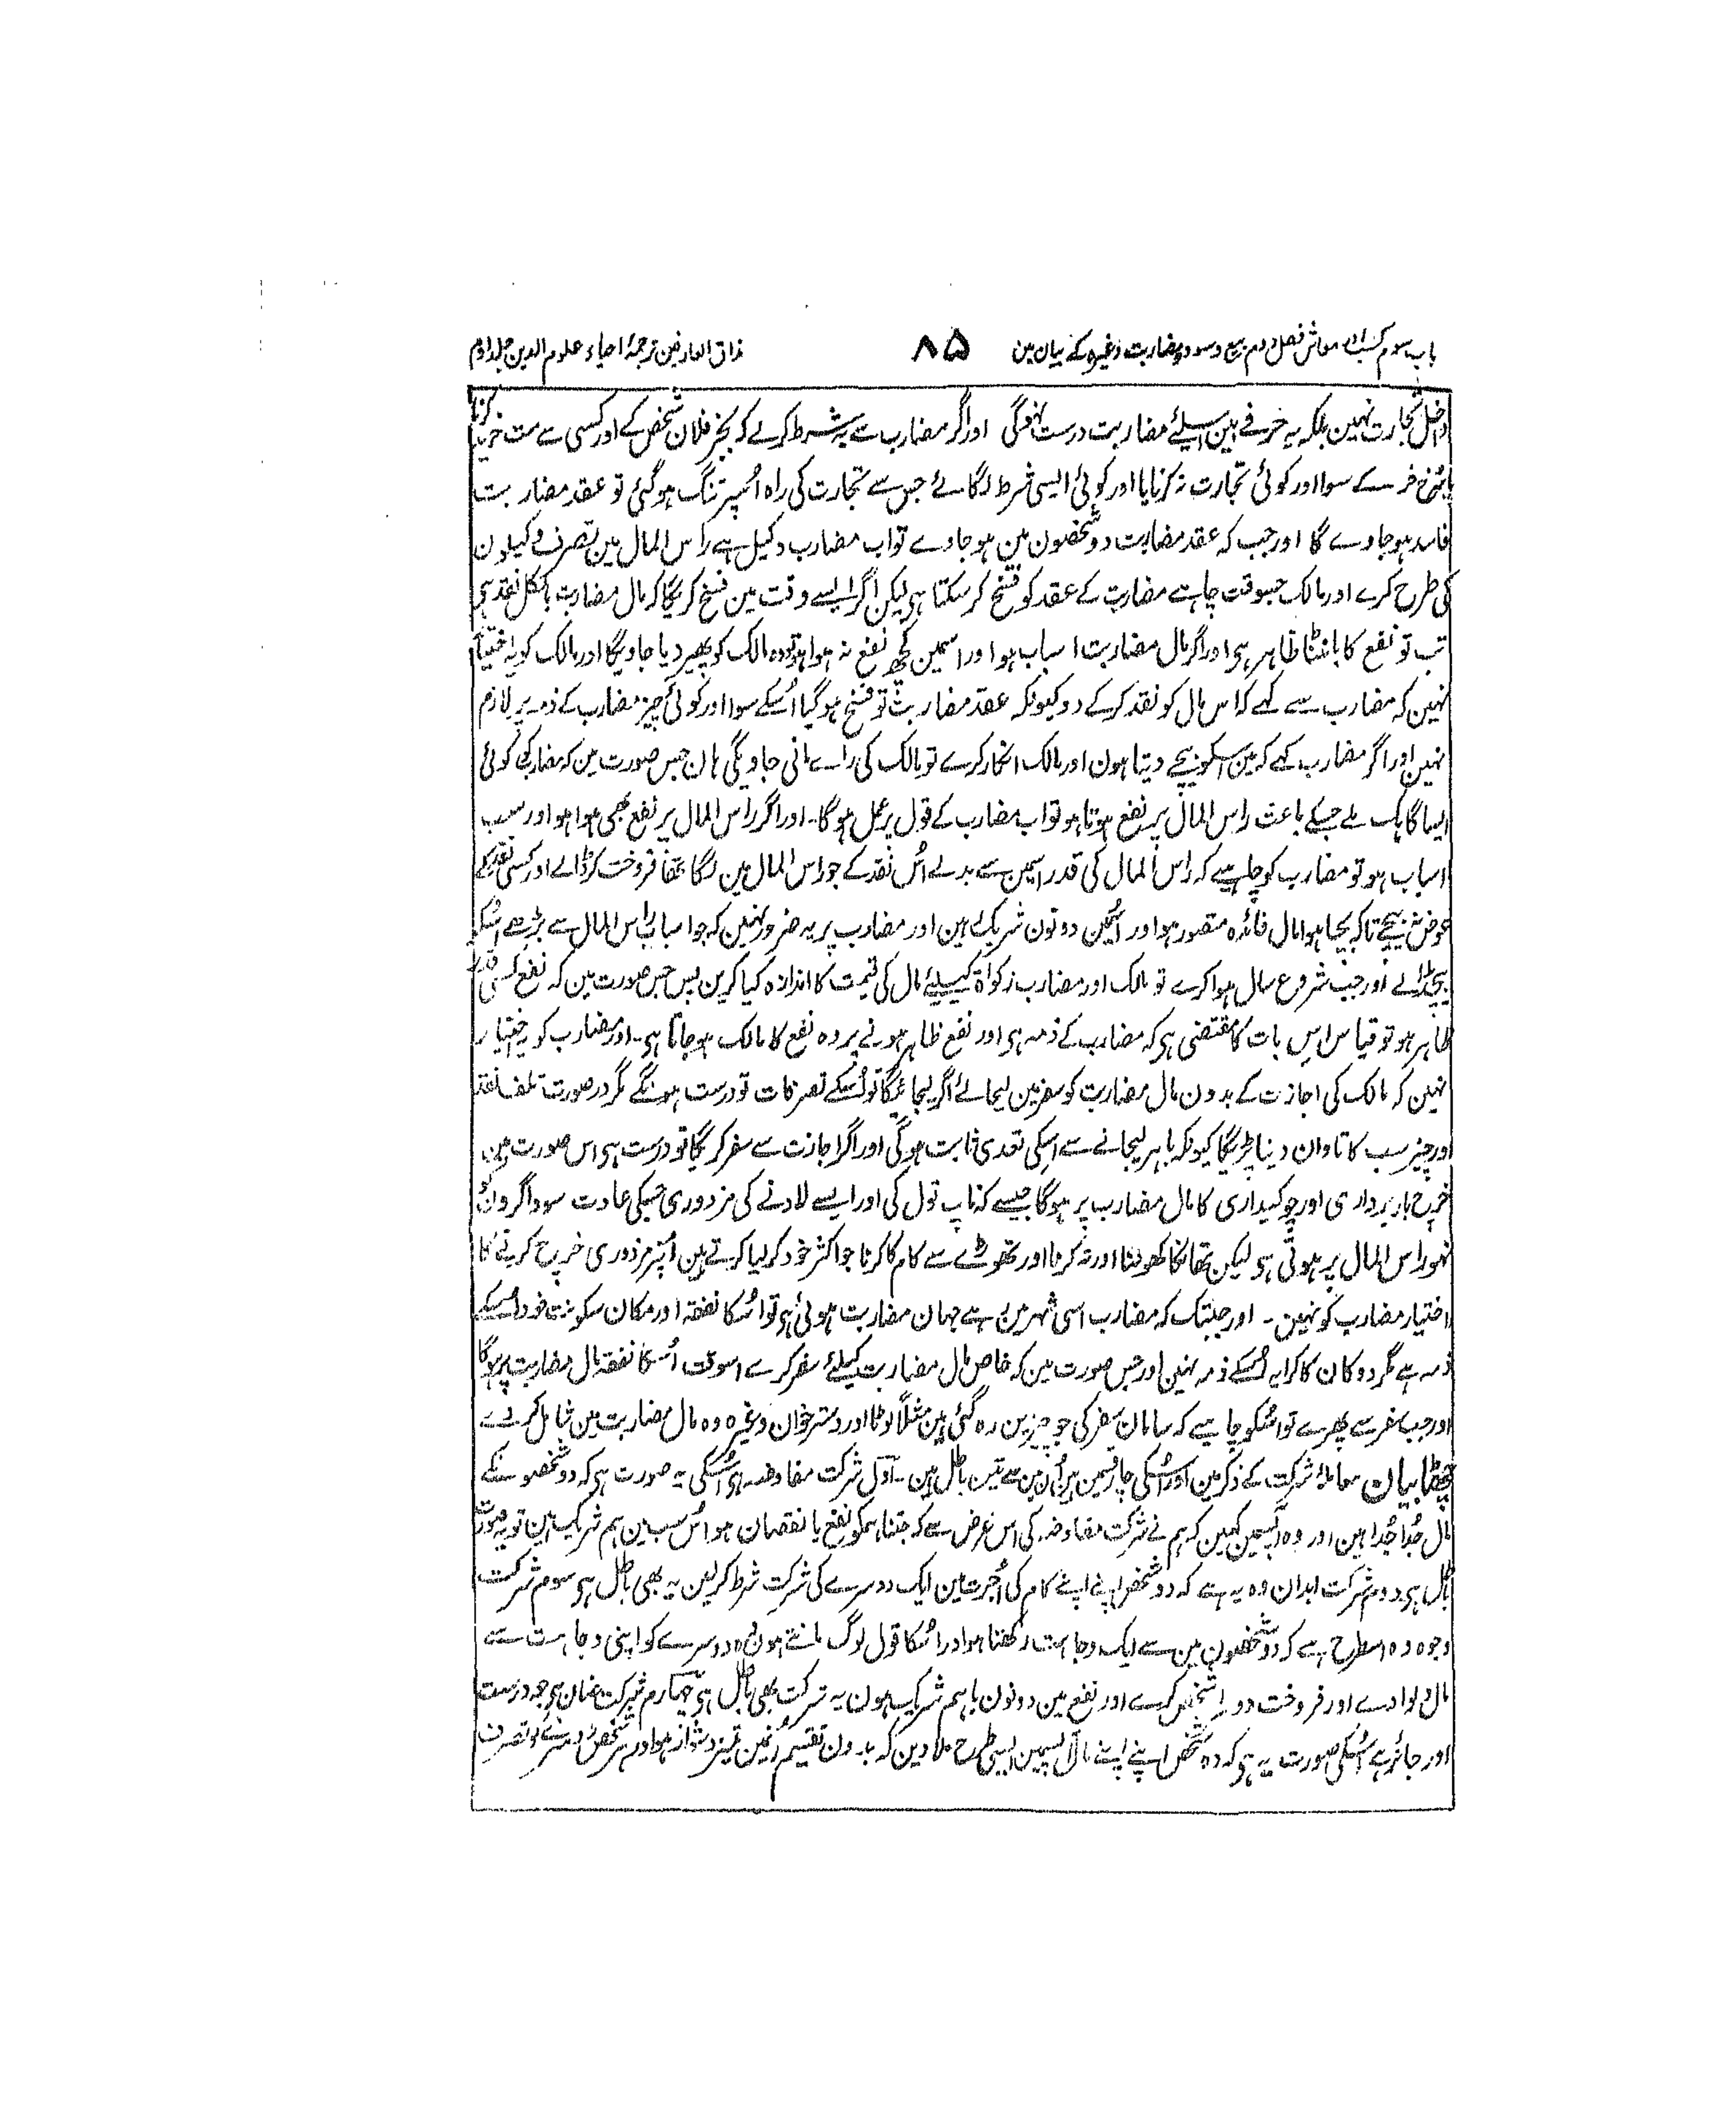 باب سوم کسب اور معاش فصل دوم بیع و سود و مضاربت وغیرہ کے بیان مین ۸۵ مذاق العارفین ترجمۂ احیاء علوم الدین جلد دوم
داخل تجارت نہین بلکہ یہ حرفے ہین اسیلئے مضاربت درست نہوگی اور اگر مضارب سے یہ شرط کرلے کہ بجز فلان شخص کے اور کسی سے مت خرید کرنا
یا سُرخ خز کے سوا اور کوئی تجارت نہ کرنا یا اور کوئی ایسی شرط لگائے جس سے تجارت کی راہ اُسپر تنگ ہوگئی تو عقد مضاربت
فاسد ہوجاوے گا اور جب کہ عقد مضاربت دو شخصون مین ہوجاوے تو اب مضارب وکیل ہے راس المال مین تصرف وکیلون
کی طرح کرے اور مالک جسوقت چاہے مضاربت کے عقد کو فسخ کرسکتا ہی لیکن اگر ایسے وقت مین فسخ کریگا کہ مال مضاربت بالکل نقد ہی
تب تو نفع کا بانٹنا ظاہر ہی اور اگر مال مضاربت اسباب ہو اور اسمین کچھ نفع نہ ہوا ہو تو وہ مالک کو پھیر دیا جاویگا اور مالک کو یہ اختیار
نہین کہ مضارب سے کہے کہ اس مال کو نقد کرکے دو کیونکہ عقد مضاربت تو فسخ ہوگیا اُسکے سوا اور کوئی چیز مضارب کے ذمہ پر لازم
نہین اور اگر مضارب کہے کہ مین اسکو بیچے دیتا ہون اور مالک انکار کرے تو مالک کی راے مانی جاویگی ہان جس صورت مین کہ مضارب کو کوئی
ایسا گاہک ملے جسکے باعث راس المال پر نفع ہوتا ہو تو اب مضارب کے قول پر عمل ہوگا۔ اور اگر راس المال پر نفع بھی ہوا ہو اور سب
اسباب ہو تو مضارب کو چاہیے کہ راس المال کی قدر اسمین سے بدلے اُس نقد کے جو راس المال مین لگا تھا فروخت کرڈالے اور کسی نقد کے
عوض نہ بیچے تاکہ بچا ہوا مال فائدہ متصور ہو اور اُسمین دونون شریک ہین اور مضارب پر یہ ضرور نہین کہ جو اسباب راس المال سے بڑھے اُسکو
بیچ ڈالے اور جب شروع سال ہوا کرے تو مالک اور مضارب زکوٰۃ کیلئے مال کی قیمت کا اندازہ کیا کرین پس جس صورت مین کہ نفع کسی قدر
ظاہر ہو تو قیاس اس بات کا مقتضی ہی کہ مضارب کے ذمہ ہی اور نفع ظاہر ہونے پر وہ نفع کا مالک ہوجاتا ہی۔ اور مضارب کو یہ اختیار
نہین کہ مالک کی اجازت کے بدون مال مضاربت کو سفر مین لیجائے اگر لیجائیگا تو اُسکے تصرفات تو درست ہونگے مگر درصورت تلف نقد
اور چیز سب کا تاوان دینا پڑیگا کیونکہ باہر لیجانے سے اسکی تعدی ثابت ہوگی اور اگر اجازت سے سفر کریگا تو درست ہی اس صورت مین
خرچ باربرداری اور چوکیداری کا مال مضاربت پر ہوگا جیسے کہ ناپ تول کی اور ایسے لادنے کی مزدوری جسکی عادت سوداگرون کو
نہو راس المال پر ہوتی ہی لیکن تھان کا کھولنا اور تہ کرنا اور تھوڑے سے کام کا کرنا جو اکثر خود کرلیا کرتے ہین اُسپر مزدوری خرچ کرنے کا
اختیار مضارب کو نہین۔ اور جبتک کہ مضارب اسی شہر مین ہے جہان مضاربت ہوئی ہی تو اُسکا نفقہ اور مکان سکونت خود اُسکے
ذمہ ہے مگر دوکان کا کرایہ اُسکے ذمہ نہین اور جس صورت مین کہ خاص مال مضاربت کیلئے سفر کرے اسوقت اُسکا نفقہ مال مضاربت پر ہوگا
اور جب سفر سے پھرے تو اُسکو چاہیے کہ سامان سفر کی جو چیزین رہ گئی ہین مثلاً لوٹا اور دسترخوان وغیرہ وہ مال مضاربت مین شامل کردے
چھٹا بیان معاملۂ شرکت کے ذکر مین اور اُسکی چار قسمین ہین اُن مین سے تین باطل ہین۔ اوّل شرکت مفاوضہ ہی اُسکی یہ صورت ہی کہ دو شخصونکے
مال جُدا جُدا ہین اور وہ آپسمین کہین کہ ہم نے شرکت مفاوضہ کی اس غرض سے کہ جتنا ہمکو نفع یا نقصان ہو اُس سب مین ہم شریک ہین تو یہ صورت
باطل ہی دوم شرکت ابدان وہ یہ ہے کہ دو شخص اپنے اپنے کام کی اُجرت مین ایک دوسرے کی شرکت شرط کرلین یہ بھی باطل ہی سوم شرکت
وجوہ وہ اسطرح ہے کہ دو شخصون مین سے ایک وجاہت رکھتا ہو اور اُسکا قول لوگ مانتے ہون وہ دوسرے کو اپنی وجاہت سے
مال دلوادے اور فروخت دوسرا شخص کرے اور نفع مین دونون باہم شریک ہون یہ شرکت بھی باطل ہی چہارم شرکت عنان ہی جو درست
اور جائز ہے اُسکی صورت یہ ہی کہ دو شخص اپنے اپنے مال آپسمین ایسی طرح ملادین کہ بدون تقسیم اُنمین تمیز دشوار ہو اور ہر شخص دوسرے کو تصرف